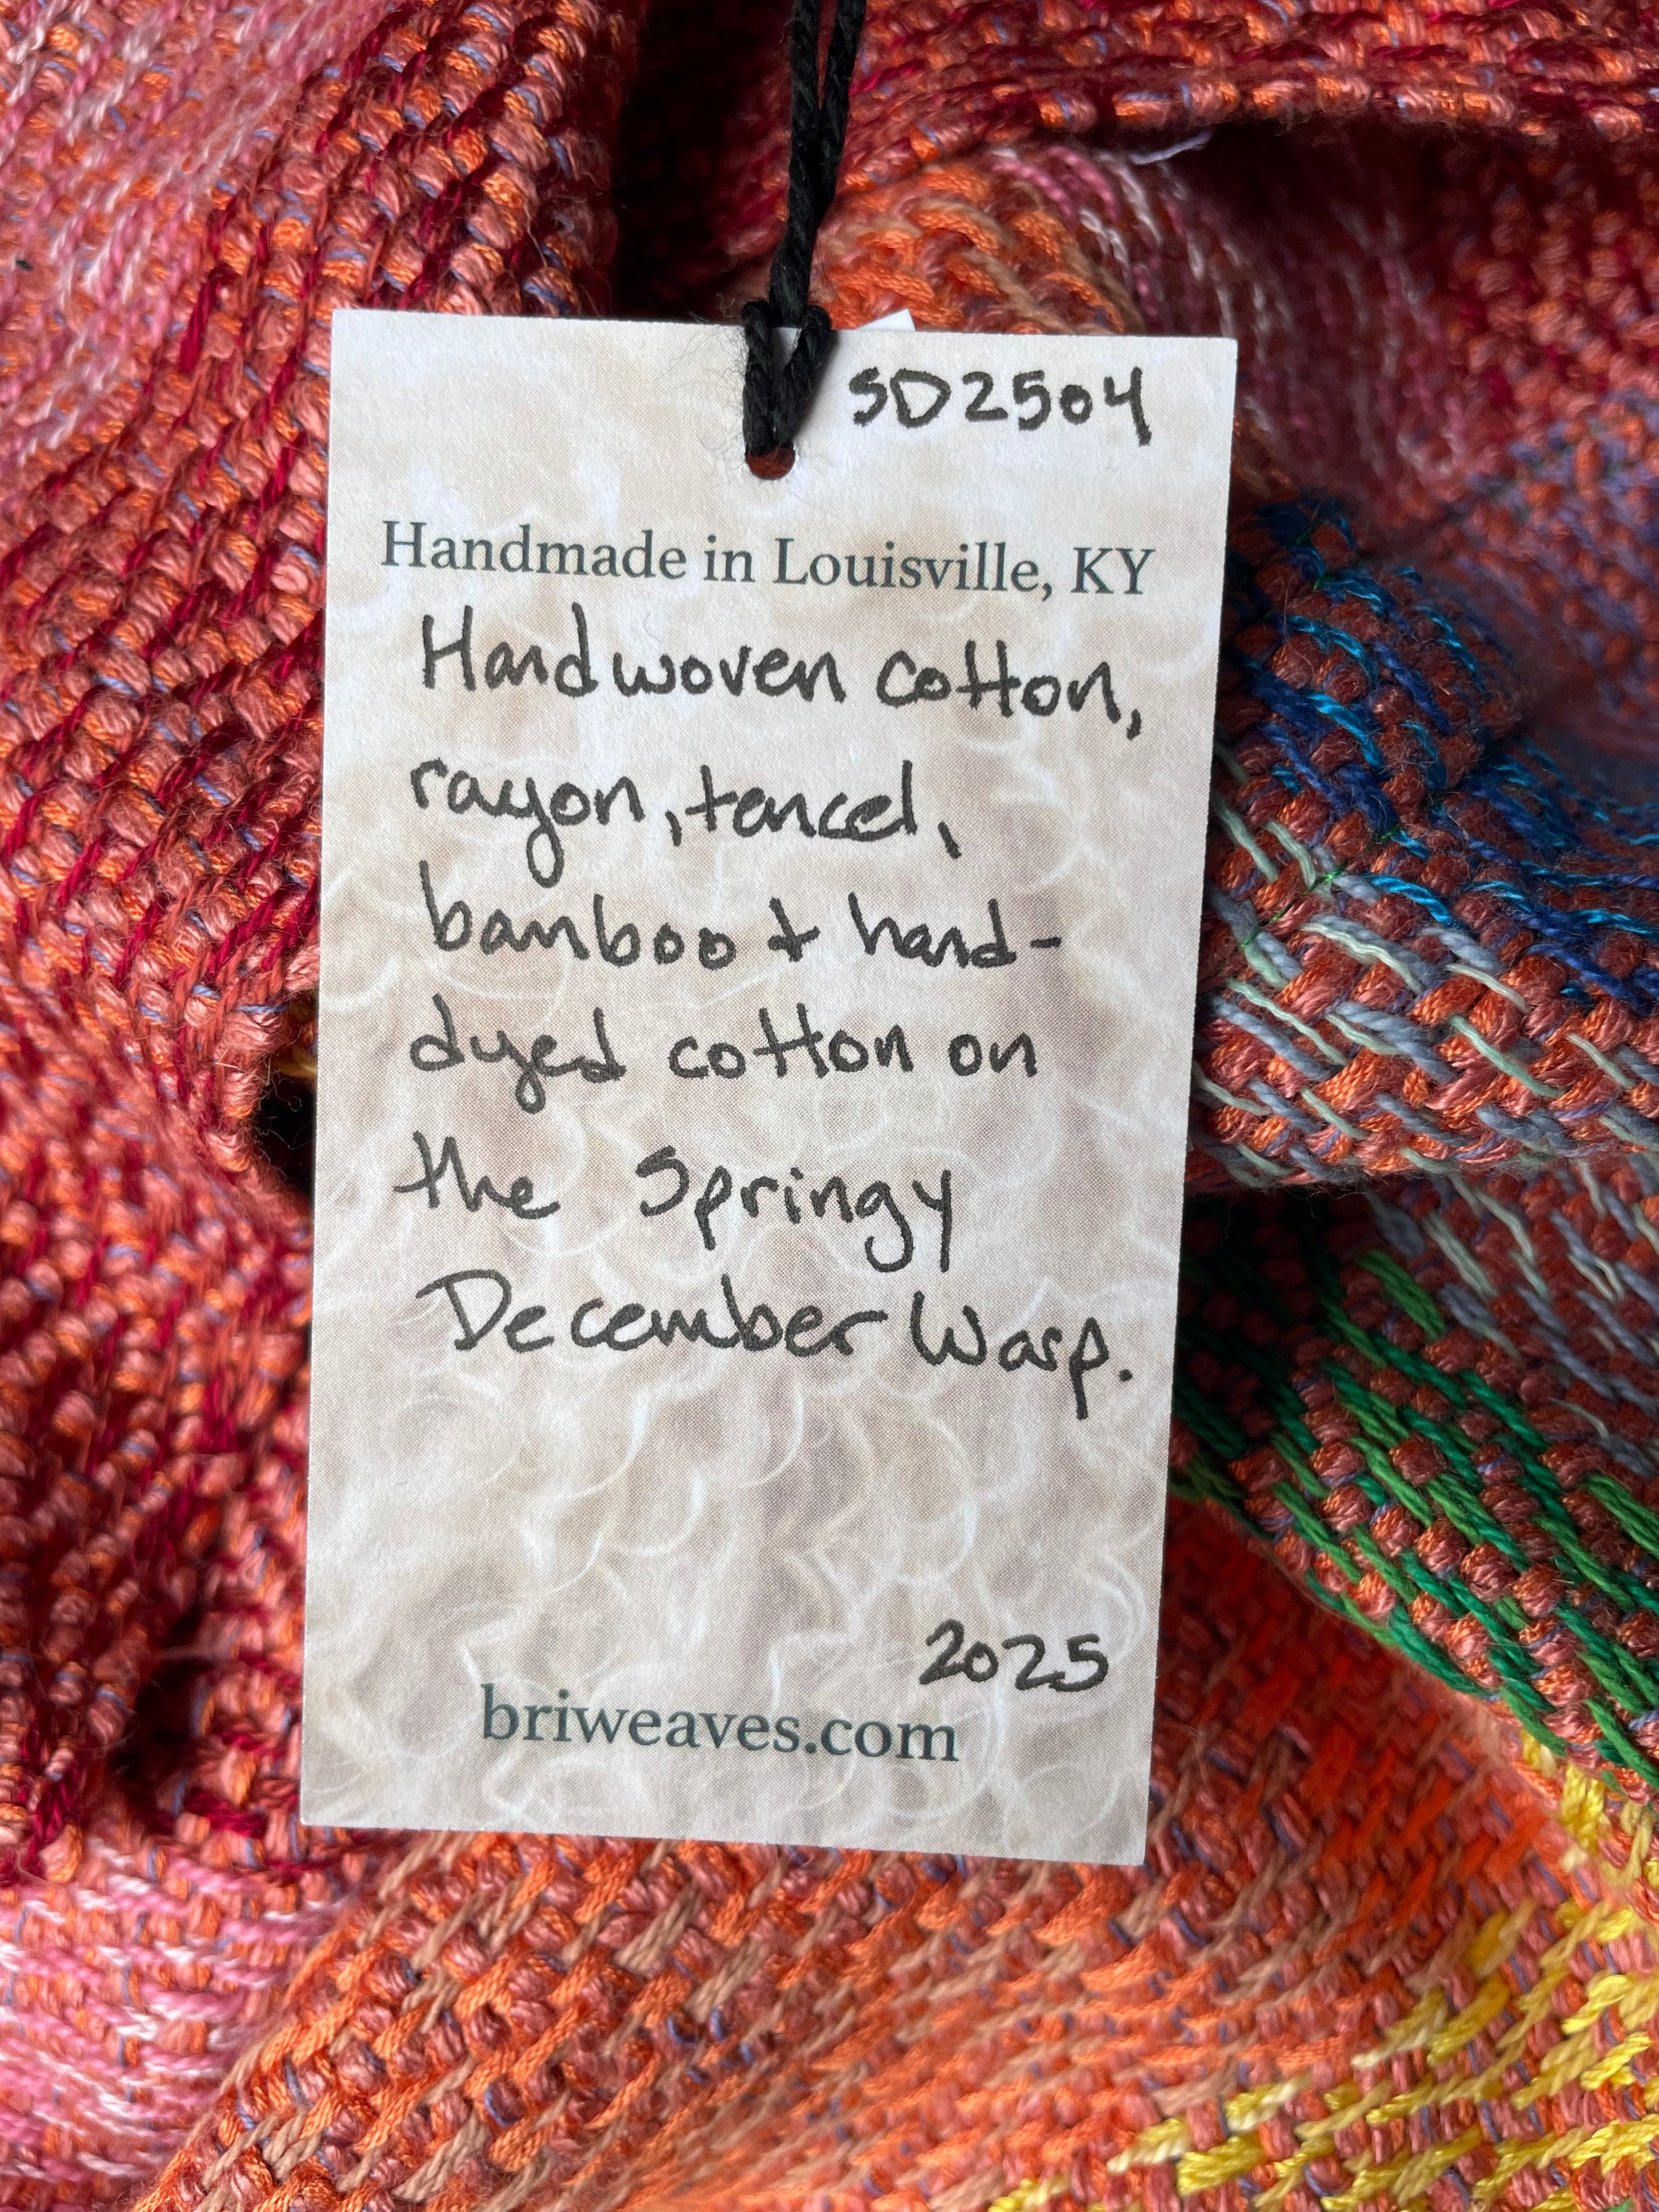 SD2504
Handmade in Louisville, KY
Handwoven cotton,
rayon, tencel,
bamboo + hand-
dyed cotton on
the Springy
December Warp.
2025
briweaves.com